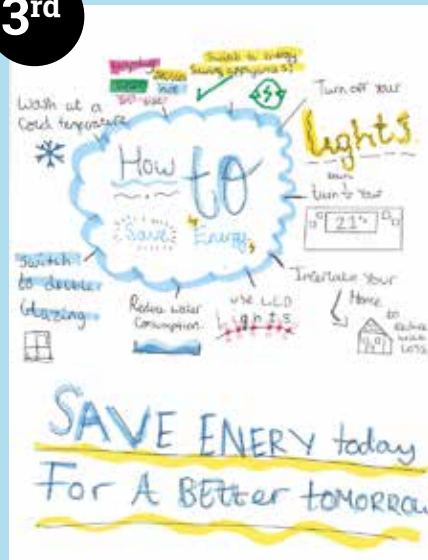 3rd
Switch to energy
Saving appliances!
Wash at a
Cold temperature
Turn off your
Lights
How to
Save Energy
turn down your
21°
Switch
to double
Glazing
Reduce water
Consumption
use LED
Lights
Insertate your
Home
to
reduce
heat
Loss
SAVE ENERY today
For A BETter tomorrow